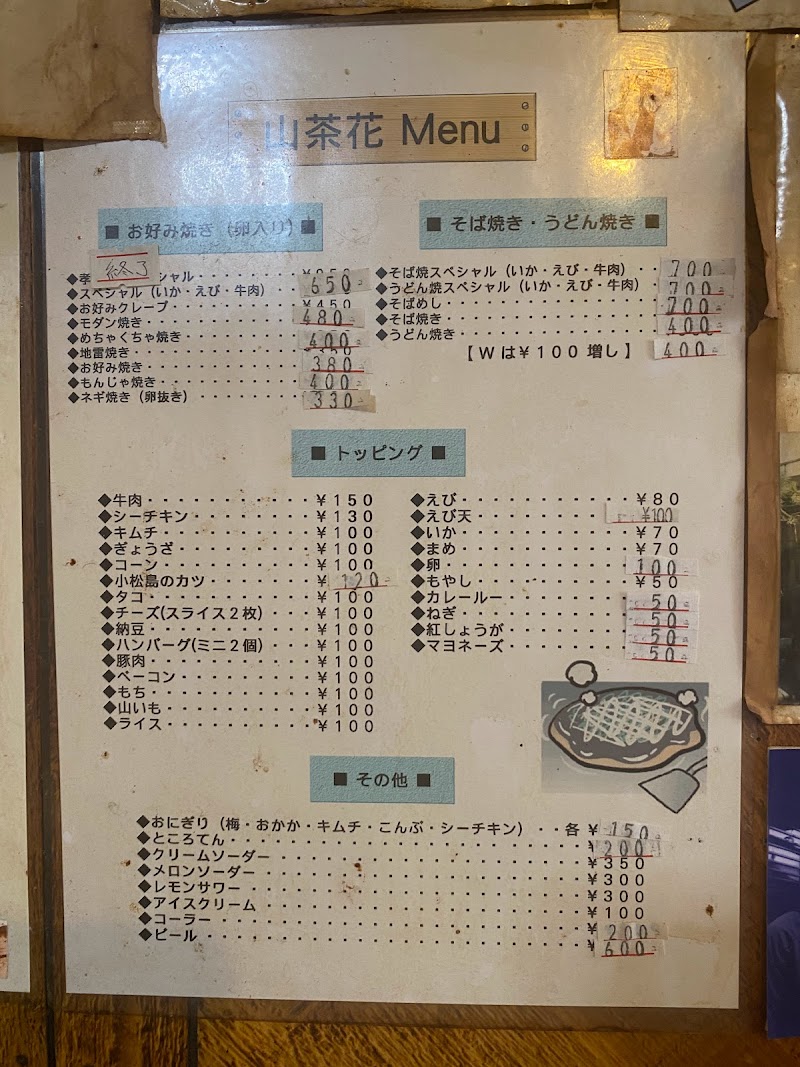 山茶花 Menu
■ お好み焼き（卵入り）■
◆孝 終了 シャル・・・・・・・
◆スペシャル（いか・えび・牛肉）・・ 650
◆お好みクレープ・・・・・・・・・ ¥450
◆モダン焼き・・・・・・・・・・・ 480
◆めちゃくちゃ焼き・・・・・・・・ 400
◆地雷焼き・・・・・・・・・・・・
◆お好み焼き・・・・・・・・・・・ 380
◆もんじゃ焼き・・・・・・・・・・ 400
◆ネギ焼き（卵抜き）・・・・・・・・ 330
■ そば焼き・うどん焼き ■
◆そば焼スペシャル（いか・えび・牛肉）・・ 700
◆うどん焼スペシャル（いか・えび・牛肉）・・ 700
◆そばめし・・・・・・・・・・・・・ 700
◆そば焼き・・・・・・・・・・・・・ 400
◆うどん焼き・・・・・・・・・・・・ 400
【Wは¥100 増し】
■ トッピング ■
◆牛肉・・・・・・・・・・・¥150
◆シーチキン・・・・・・・・¥130
◆キムチ・・・・・・・・・・¥100
◆ぎょうざ・・・・・・・・・¥100
◆コーン・・・・・・・・・・¥100
◆小松島のカツ・・・・・・・¥120
◆タコ・・・・・・・・・・・¥100
◆チーズ(スライス２枚)・・・¥100
◆納豆・・・・・・・・・・・¥100
◆ハンバーグ(ミニ２個)・・・¥100
◆豚肉・・・・・・・・・・・¥100
◆ベーコン・・・・・・・・・¥100
◆もち・・・・・・・・・・・¥100
◆山いも・・・・・・・・・・¥100
◆ライス・・・・・・・・・・¥100
◆えび・・・・・・・・・・・¥80
◆えび天・・・・・・・・・・¥100
◆いか・・・・・・・・・・・¥70
◆まめ・・・・・・・・・・・¥70
◆卵・・・・・・・・・・・・100
◆もやし・・・・・・・・・・¥50
◆カレールー・・・・・・・・50
◆ねぎ・・・・・・・・・・・50
◆紅しょうが・・・・・・・・50
◆マヨネーズ・・・・・・・・50
■ その他 ■
◆おにぎり（梅・おかか・キムチ・こんぶ・シーチキン）・・各 ¥150
◆ところてん・・・・・・・・・・・・・・・・・・¥200
◆クリームソーダー・・・・・・・・・・・・・・・¥350
◆メロンソーダー・・・・・・・・・・・・・・・・¥300
◆レモンサワー・・・・・・・・・・・・・・・・・¥300
◆アイスクリーム・・・・・・・・・・・・・・・・¥100
◆コーラー・・・・・・・・・・・・・・・・・・・¥200
◆ビール・・・・・・・・・・・・・・・・・・・・¥600